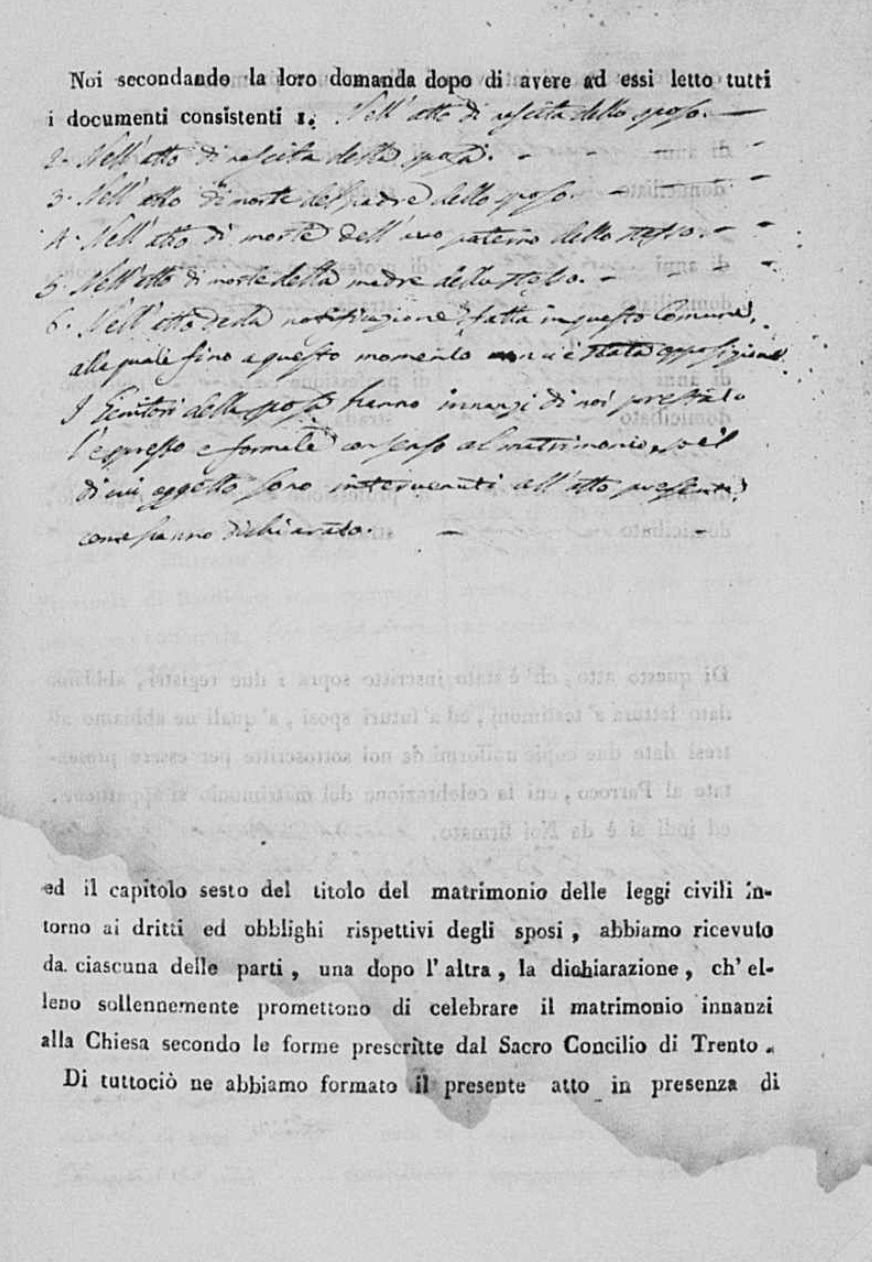 Noi secondando la loro domanda dopo di avere ad essi letto tutti
i documenti consistenti 1. Nell' atto di nascita dello sposo.
2. Nell' atto di nascita della sposa.
3. Nell' atto di morte del padre dello sposo.
4. Nell' atto di morte dell' avo paterno dello stesso.
5. Nell' atto di morte della madre dello stesso.
6. Nell' atto della notificazione fatta in questo Comune,
alle quale fino a questo momento non vi è stata opposizione.
I Genitori della sposa hanno innanzi di noi prestato
l' espresso e formale consenso al matrimonio,
di cui oggetto sono intervenuti all' atto presente,
come hanno dichiarato.
ed il capitolo sesto del titolo del matrimonio delle leggi civili in-
torno ai dritti ed obblighi rispettivi degli sposi, abbiamo ricevuto
da ciascuna delle parti, una dopo l' altra, la dichiarazione, ch' el-
leno sollennemente promettono di celebrare il matrimonio innanzi
alla Chiesa secondo le forme prescritte dal Sacro Concilio di Trento.
Di tuttociò ne abbiamo formato il presente atto in presenza di